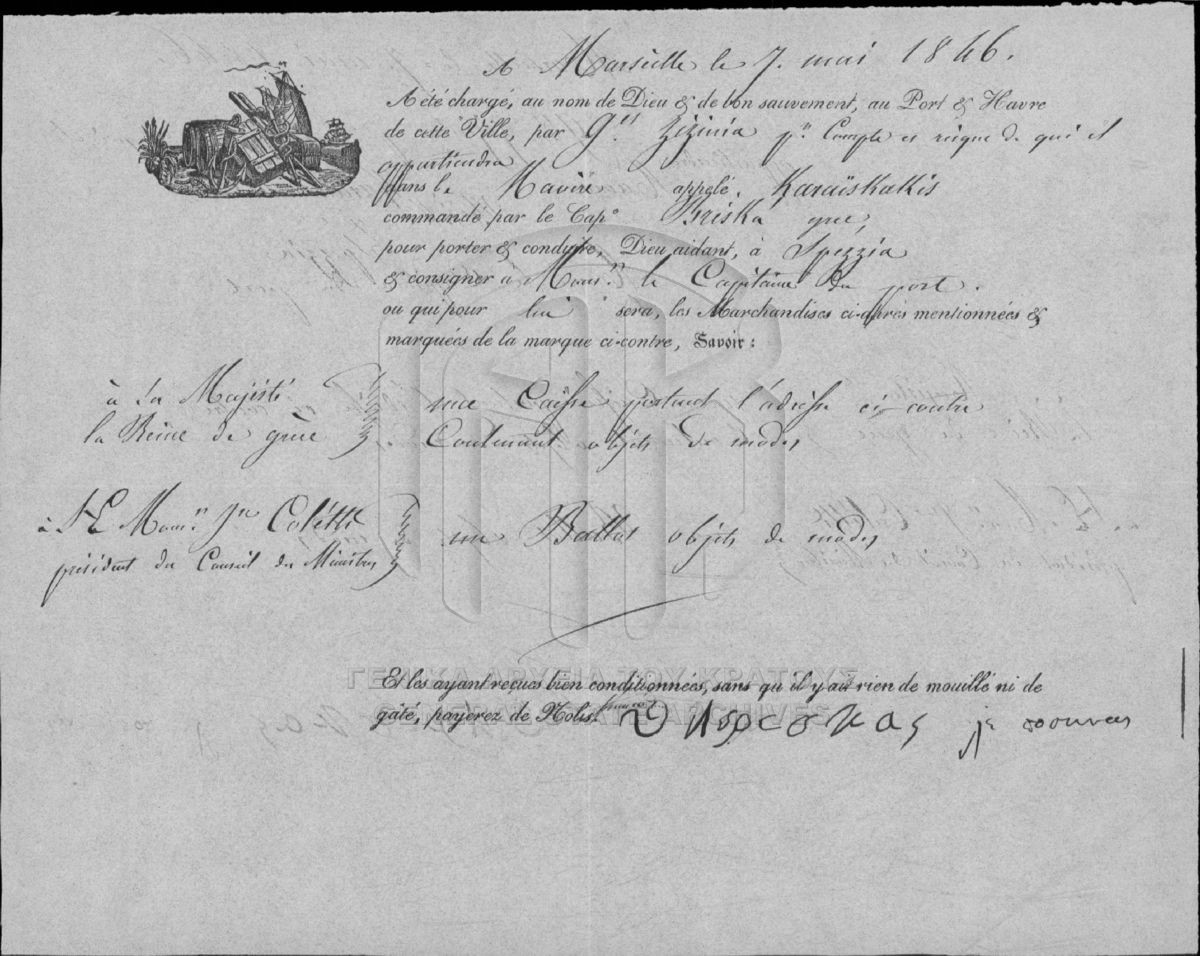 A Marseille le 7. mai 1846.
A été chargé, au nom de Dieu & de bon sauvement, au Port & Havre
de cette Ville, par Zizinia pr Compte et risque de qui il
appartiendra
dans le Navire appelé, Karaïskakis
commandé par le Cap.e Briska grec,
pour porter & conduire, Dieu aidant, à Spezzia
& consigner à Monsr. le Capitaine du port.
ou qui pour lui sera, les Marchandises ci-après mentionnées &
marquées de la marque ci-contre, Savoir :
à Sa Majesté
la Reine de grèce
une Caisse portant l'adresse ci-contre
Contenant objets de modes
à S E Monsr. Jn Coletti
président du Conseil des Ministres
un Ballot objets de modes
ΓΕΝΙΚΑ ΑΡΧΕΙΑ ΤΟΥ ΚΡΑΤΟΥΣ
GENERAL STATE ARCHIVES
Et les ayant reçues bien conditionnées, sans qu'il y ait rien de mouillé ni de
gâté, payerez de Nolis.